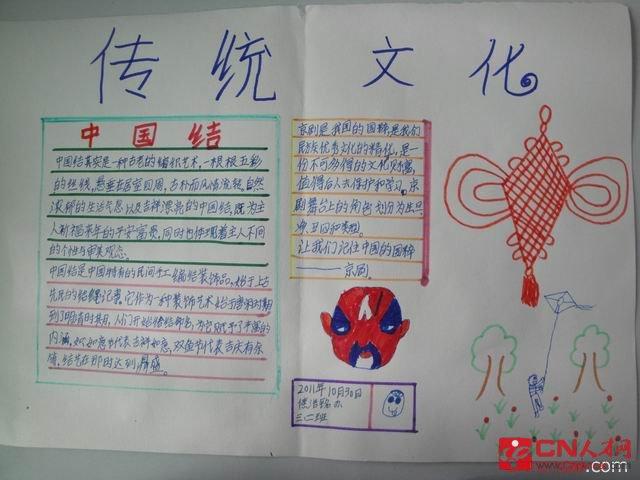 传统文化
中国结
中国结其实是一种古老的编织艺术，一根根五彩
的丝线，悬垂在居室四周，古朴而风情流转，自然
浓郁的生活气息以及吉祥漂亮的中国结，既为主
人祈福来年的平安富贵，同时也体现着主人不同
的个性与审美观念。
中国结是中国特有的民间手工编结装饰品，始于上古
先民的结绳记事。它作为一种装饰艺术始于唐宋时期
到了明清时期，人们开始给结命名，为它赋予了丰富的
内涵，如如意节代表吉祥如意，双鱼节代表吉庆有余
等，结艺在那时达到鼎盛。
京剧是我国的国粹，是我们
民族优秀文化的精化，是一
份不可多得的文化财富，
值得后人去保护和学习。京
剧舞台上的角色划分为生旦
净丑四种类型。
让我们记住中国的国粹
——京剧。
2011年10月30日
三(二)班
CN人才网
.com